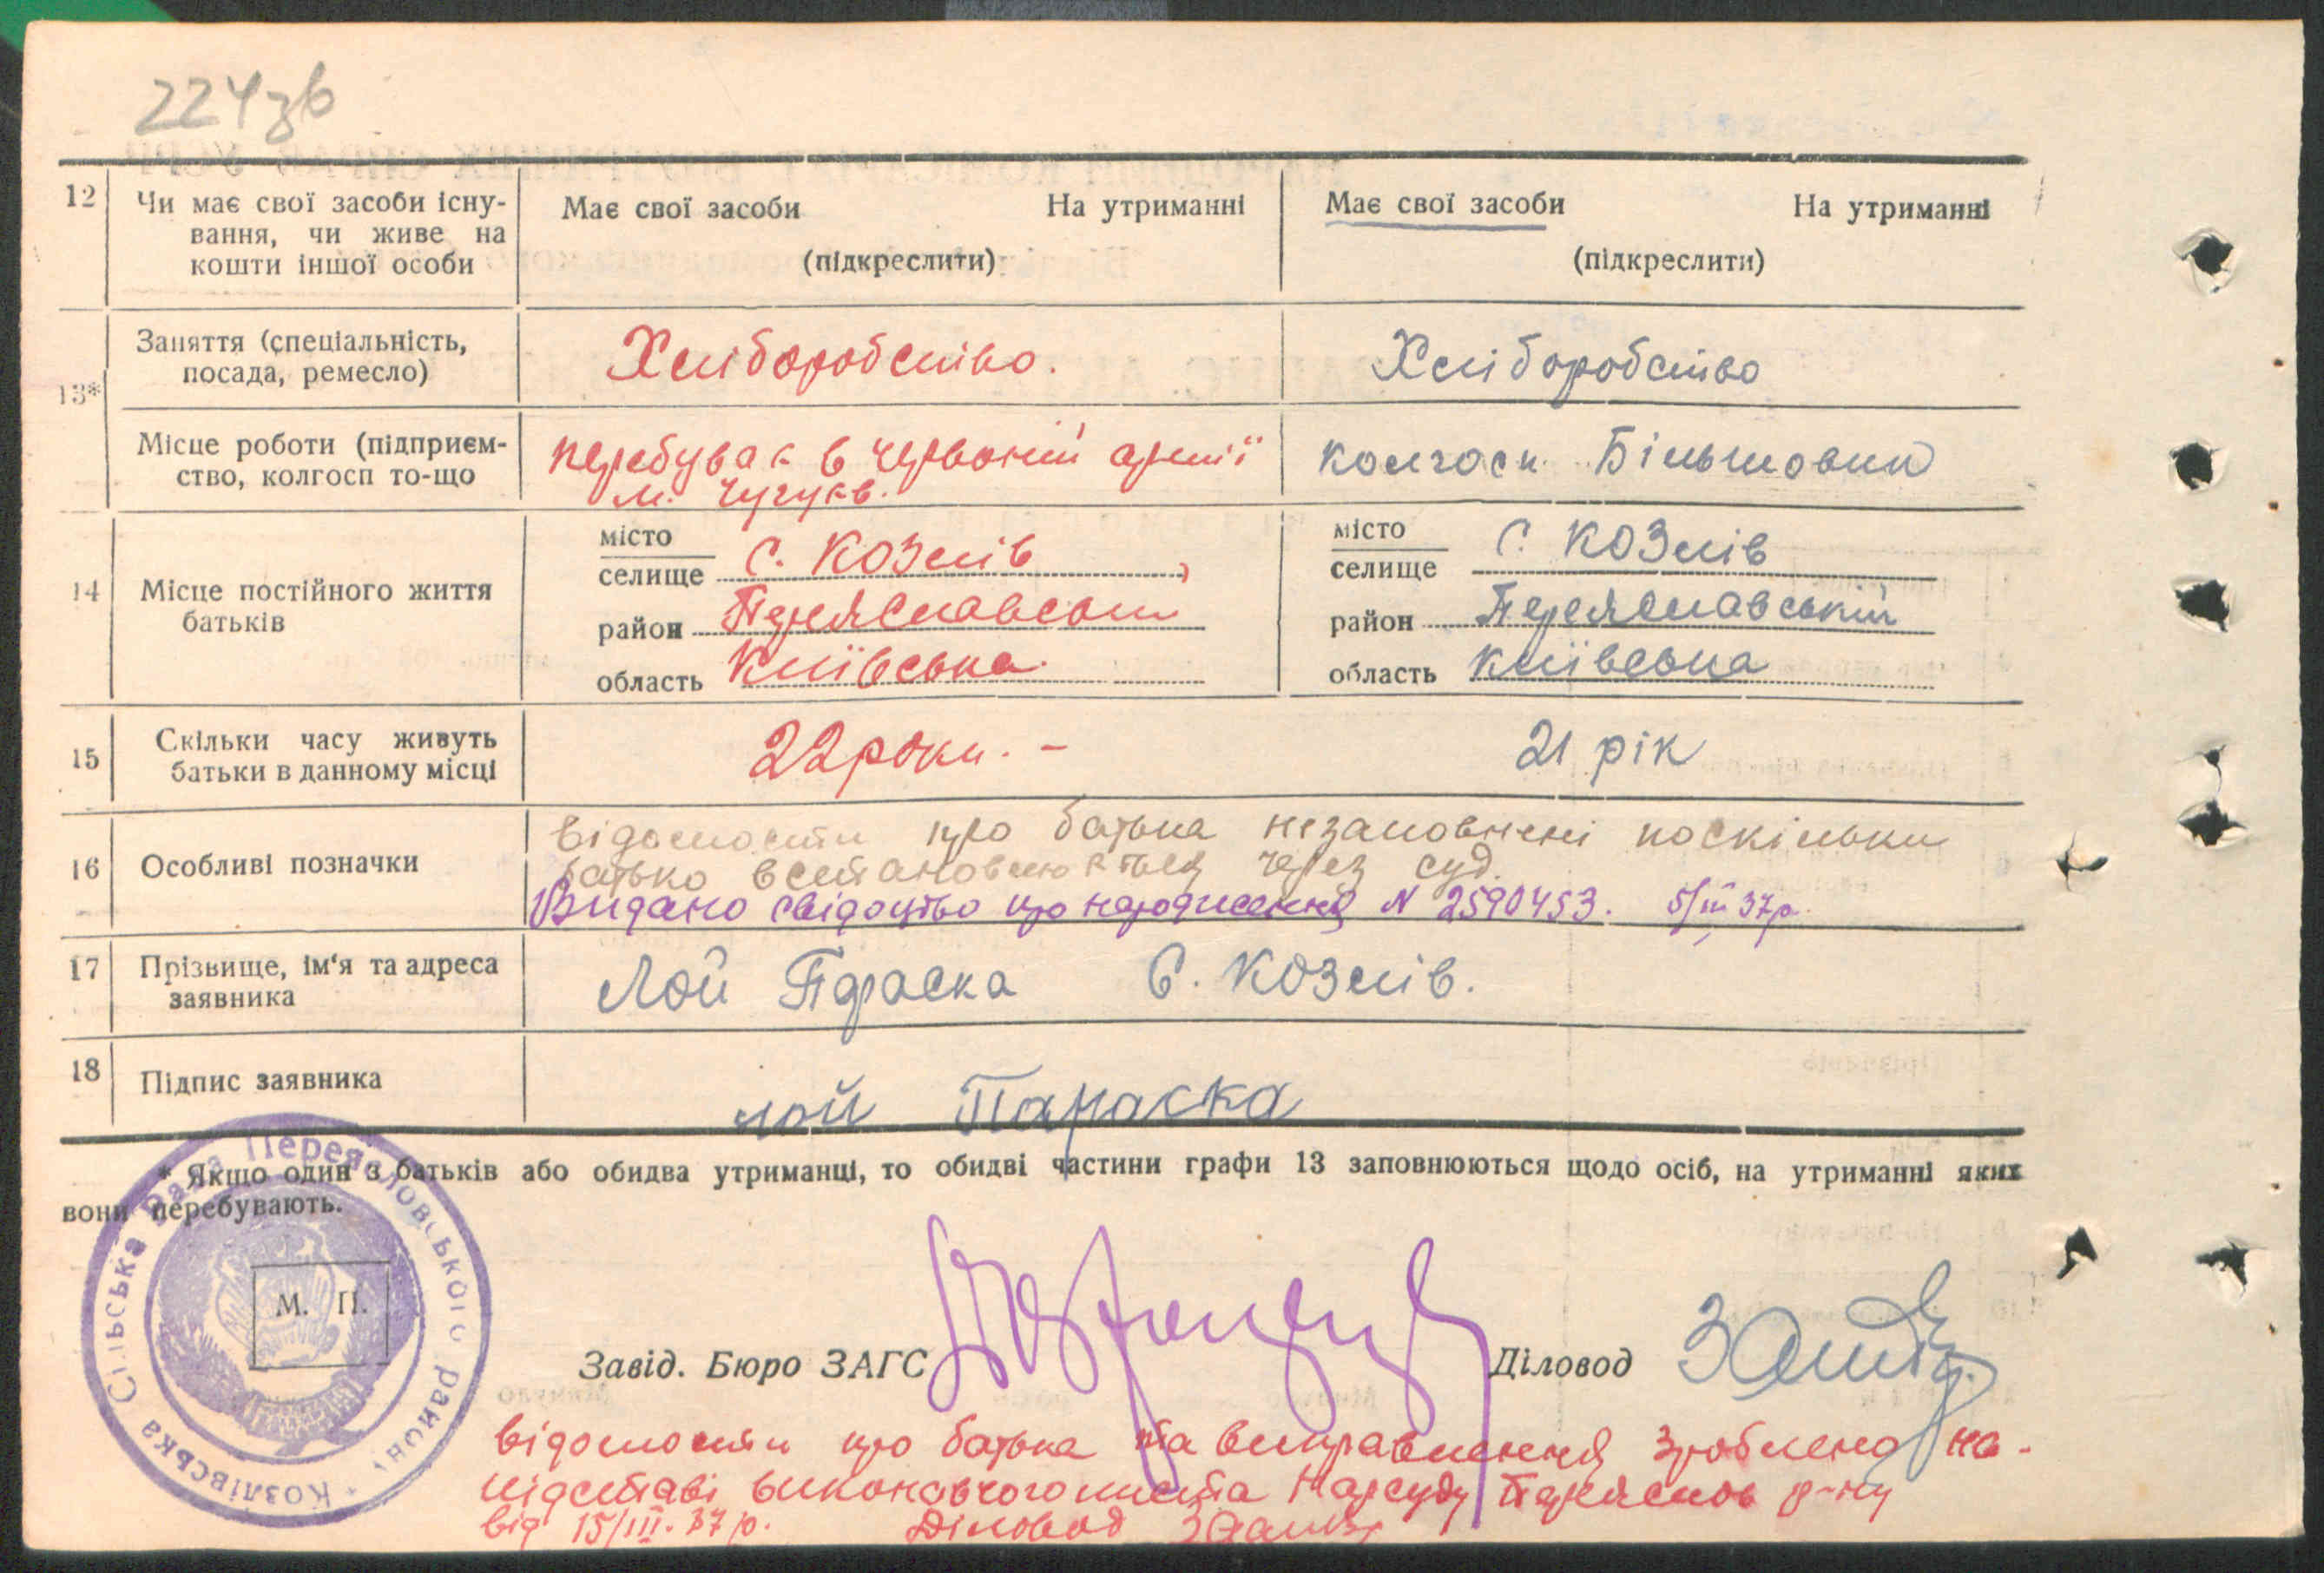 224зв
12 Чи має свої засоби існу-
вання, чи живе на
кошти іншої особи
Має свої засоби На утриманні
(підкреслити)
Має свої засоби На утриманні
(підкреслити)
13*
Заняття (спеціальність,
посада, ремесло)
Хліборобство.
Хліборобство
Місце роботи (підприєм-
ство, колгосп то-що
перебуває в червоній армії
м. Чугуєв.
колгосп Більшовик
14 Місце постійного життя
батьків
місто
селище с. Козлів
район Переяславськи
область Київська
місто
селище с. Козлів
район Переяславський
область Київська
15 Скільки часу живуть
батьки в данному місці
22 роки. -
21 рік
16 Особливі позначки
відомости про батька незаповнені поскільки
батько встановлюється через суд.
Видано свідоцтво про народження N 2590453. 5/III 37р.
17 Прізвище, ім'я та адреса
заявника
Лой Параска С. Козлів.
18 Підпис заявника
лой Параска
* Якщо один з батьків або обидва утриманці, то обидві частини графи 13 заповнюються щодо осіб, на утриманні яких
вони перебувають.
Козлівська Сільська Рада Переясловського району
М. П.
Завід. Бюро ЗАГС
Діловод
відомости про батька та виправлення зроблено на-
підставі виконавчого листа Нарсуду Переяслов р-ну
від 15/III-37 р. Діловод